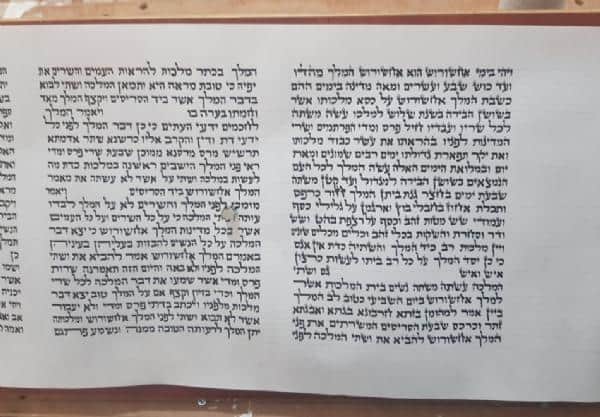 ויהי בימי אחשורוש הוא אחשורוש המלך מהדו
ועד כוש שבע ועשרים ומאה מדינה בימים ההם
כשבת המלך אחשורוש על כסא מלכותו אשר
בשושן הבירה בשנת שלוש למלכו עשה משתה
לכל שריו ועבדיו חיל פרס ומדי הפרתמים ושרי
המדינות לפניו בהראתו את עשר כבוד מלכותו
ואת יקר תפארת גדולתו ימים רבים שמונים ומאת
יום ובמלואת הימים האלה עשה המלך לכל העם
הנמצאים בשושן הבירה למגדול ועד קטן משתה
שבעת ימים בחצר גנת ביתן המלך חור כרפס
ותכלת אחוז בחבלי בוץ וארגמן על גלילי כסף
ועמודי שש מטות זהב וכסף על רצפת בהט ושש
ודר וסחרת והשקות בכלי זהב וכלים מכלים שונים
ויין מלכות רב כיד המלך והשתיה כדת אין אנס
כי כן יסד המלך על כל רב ביתו לעשות כרצון
איש ואיש גם ושתי
המלכה עשתה משתה נשים בית המלכות אשר
למלך אחשורוש ביום השביעי כטוב לב המלך
ביין אמר למהומן בזתא חרבונא בגתא ואבגתא
זתר וכרכס שבעת הסריסים המשרתים את פני
המלך אחשורוש להביא את ושתי המלכה לפני
המלך בכתר מלכות להראות העמים והשרים את
יפיה כי טובת מראה היא ותמאן המלכה ושתי לבוא
בדבר המלך אשר ביד הסריסים ויקצף המלך מאד
וחמתו בערה בו ויאמר המלך
לחכמים ידעי העתים כי כן דבר המלך לפני כל
ידעי דת ודין והקרב אליו כרשנא שתר אדמתא
תרשיש מרס מרסנא ממוכן שבעת שרי פרס ומדי
ראי פני המלך הישבים ראשנה במלכות כדת מה
לעשות במלכה ושתי על אשר לא עשתה את מאמר
המלך אחשורוש ביד הסריסים ויאמר
מומכן לפני המלך והשרים לא על המלך לבדו
עותה ושתי המלכה כי על כל השרים ועל כל העמים
אשר בכל מדינות המלך אחשורוש כי יצא דבר
המלכה על כל הנשים להבזות בעליהן בעיניהן
באמרם המלך אחשורוש אמר להביא את ושתי
המלכה לפניו ולא באה והיום הזה תאמרנה שרות
פרס ומדי אשר שמעו את דבר המלכה לכל שרי
המלך וכדי בזיון וקצף אם על המלך טוב יצא דבר
מלכות מלפניו ויכתב בדתי פרס ומדי ולא יעבור
אשר לא תבוא ושתי לפני המלך אחשורוש ומלכותה
יתן המלך לרעותה הטובה ממנה ונשמע פתגם